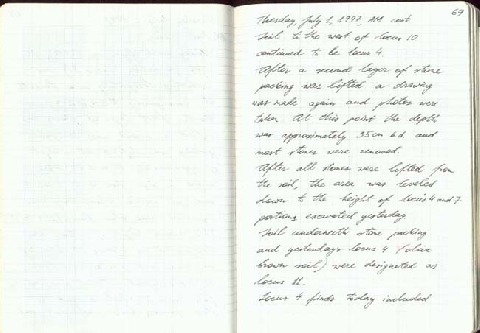 69
Tuesday, July 1, 1997, AM cont
Soil to the west of locus 10
continued to be locus 4.
After a second layer of stone
packing was lifted a drawing
was made again and photos were
taken. At this point the depth
was approximately 35 cm bd and
most stones were removed.
After all stones were lifted from
the soil, the area was leveled
down to the height of locus 4 and 7
portions excavated yesterday
Soil underneath stone packing
and yesterdays locus 4
brown soil) were designated as
locus 11.
Locus 4 finds today included